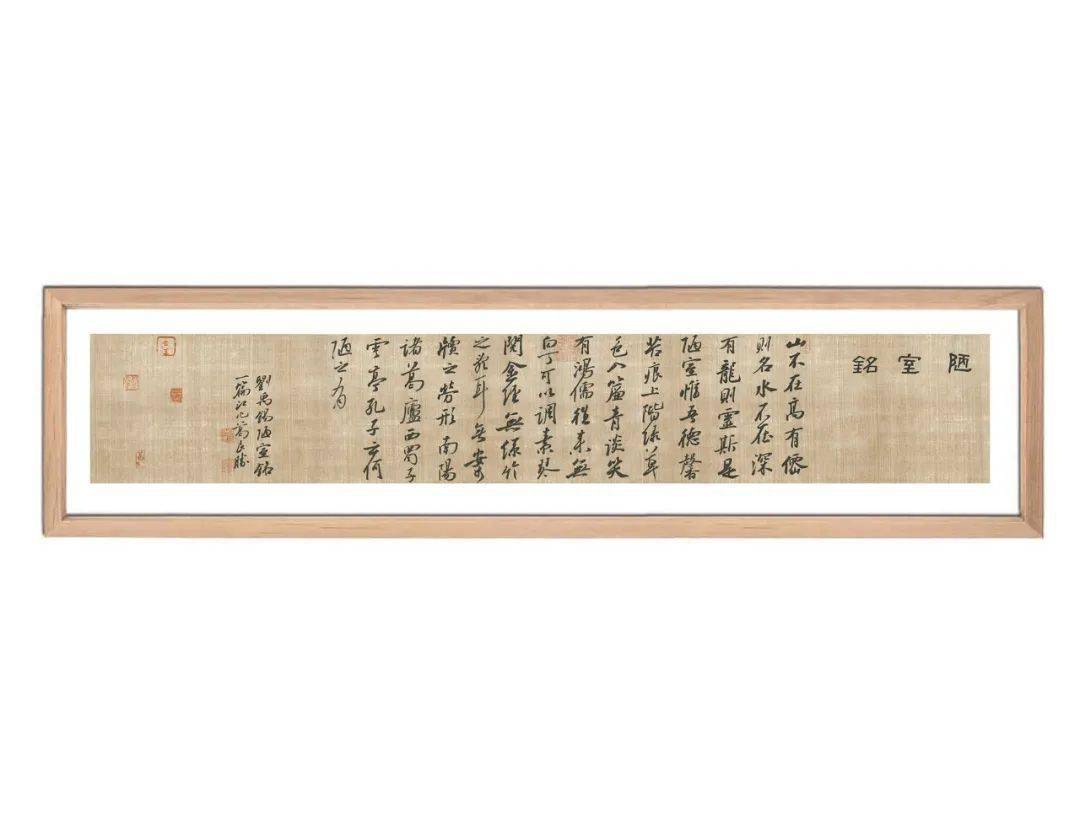 陋室銘
山不在高有僊
則名水不在深
有龍則靈斯是
陋室惟吾德馨
苔痕上階綠草
色入簾青談笑
有鴻儒往來無
白丁可以調素琴
閱金經無絲竹
之亂耳無案
牘之勞形南陽
諸葛廬西蜀子
雲亭孔子云何
陋之有
劉禹錫陋室銘
一篇